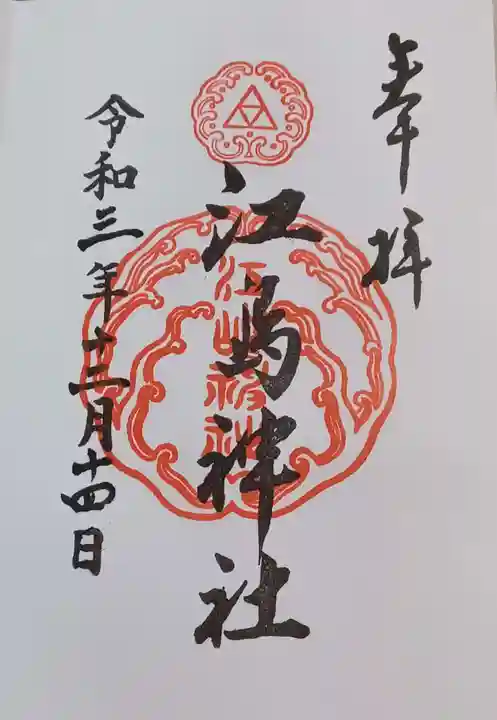 奉拝
江島神社
令和三年十二月十四日